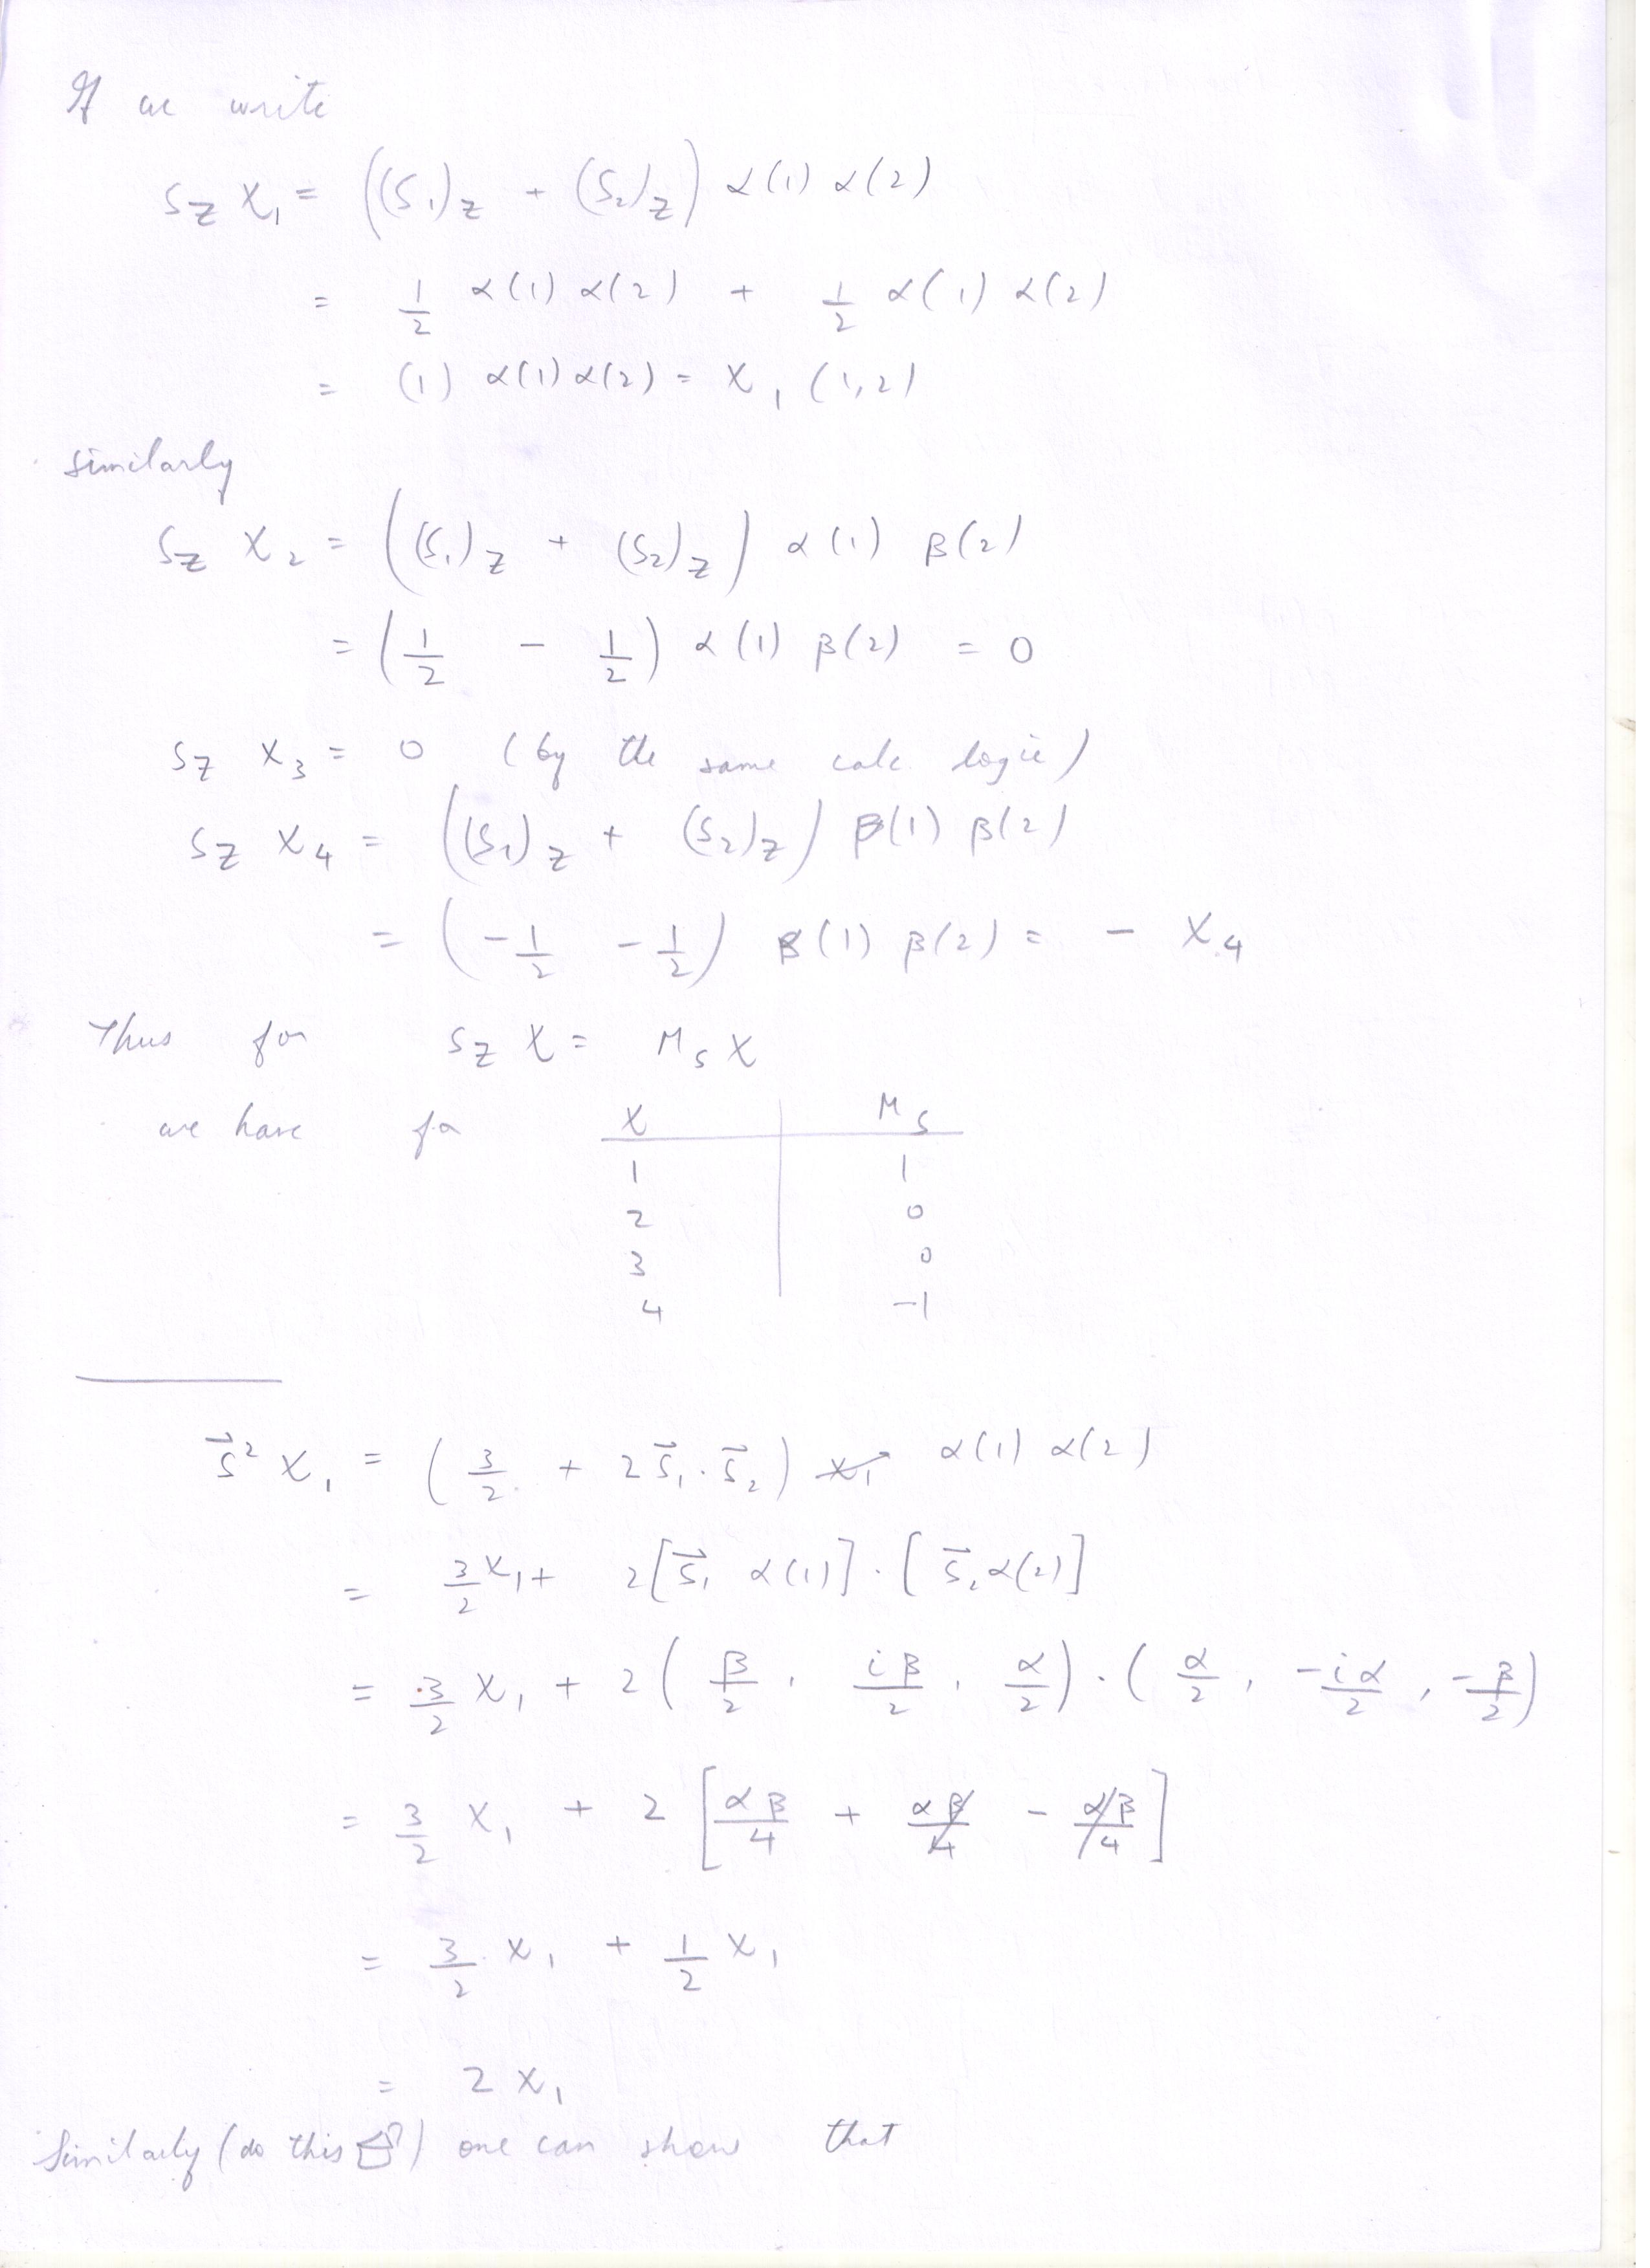 If we write
S_z χ_1 = ((S_1)_z + (S_2)_z) α(1) α(2)
= 1/2 α(1) α(2) + 1/2 α(1) α(2)
= (1) α(1) α(2) = χ_1 (1,2)
similarly
S_z χ_2 = ((S_1)_z + (S_2)_z) α(1) β(2)
= (1/2 - 1/2) α(1) β(2) = 0
S_z χ_3 = 0 (by the same calc logic)
S_z χ_4 = ((S_1)_z + (S_2)_z) β(1) β(2)
= (-1/2 - 1/2) β(1) β(2) = - χ_4
Thus for S_z χ = M_s χ
we have for χ M_s
1 1
2 0
3 0
4 -1
S⃗² χ_1 = (3/2 + 2 S⃗_1 · S⃗_2) χ_1 α(1) α(2)
= 3/2 χ_1 + 2[S⃗_1 α(1)] · [S⃗_2 α(2)]
= 3/2 χ_1 + 2(β/2, iβ/2, α/2) · (α/2, -iα/2, -β/2)
= 3/2 χ_1 + 2 [αβ/4 + αβ/4 - αβ/4]
= 3/2 χ_1 + 1/2 χ_1
= 2 χ_1
Similarly (do this) one can show that